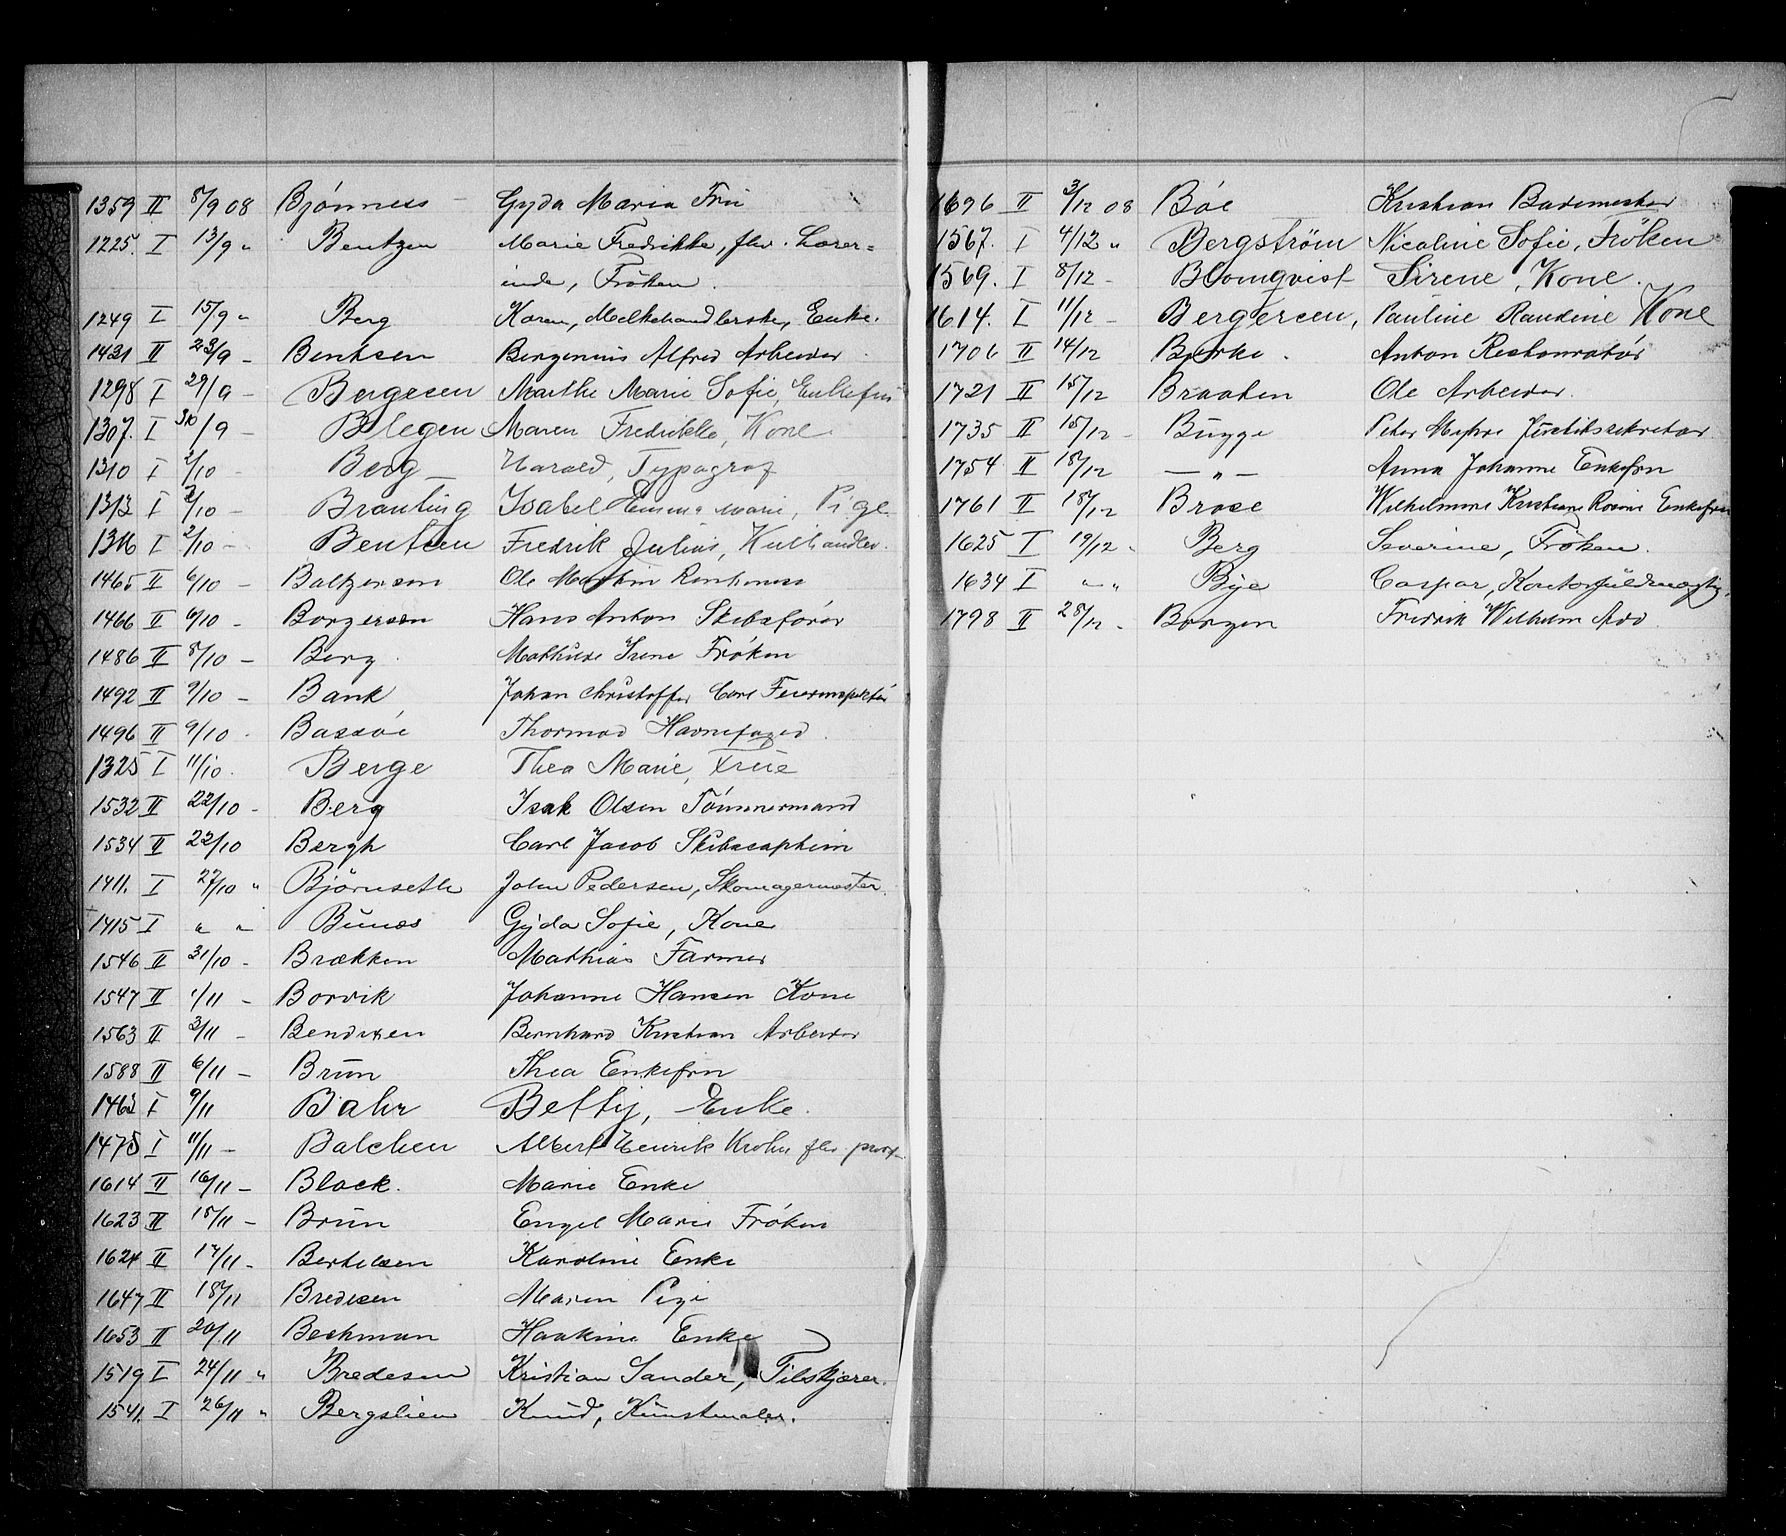 1359 II 8/9 08 Bjønness – Gyda Maria Fru
1225. I 13/9 „ Bentzen Marie Fredrikke, flv. Lærer=
inde, Frøken.
1249 I 15/9 „ Berg Karen, Melkehandlerske, Enke.
1431 II 23/9 – Bentsen Bergenius Alfred Arbeider
1298 I 29/9 – Bergesen Marthe Marie Sofie, Enkefru
1307. I 30/9 – Blegen Maren Fredrikke, Kone
1310 I 2/10 – Berg – Harald, Typograf
1313 I 2/10 – Branting Isabel Emma Marie, Pige.
1316 I 2/10 – Bentsen Fredrik Julius, Kulhandler.
1465 II 6/10 – Baltzersen Ole Martin
1466 II 6/10 – Borgersen Hans Anton Skibsfører
1486 II 8/10 – Berg. Mathilde Irene Frøken
1492 II 9/10 – Bank Johan Christoffer Carl
1496 II 9/10 – Bassøe Thormod Havnefoged.
1325 I 11/10. Berge Thea Marie, Frue
1532 II 22/10 – Berg Isak Olsen Tømmermand
1534 II 22/10 Bergh Carl Jacob Skibscaptein
1411. I 27/10 „ Bjørnseth John Pedersen, Skomagermester.
1415 I „ „ Bunæs Gyda Sofie, Kone
1546 II 31/10 – Brækken Mathias Farmer
1547 II 1/11 – Borvik Johanne Hansen Kone
1563 II 3/11 – Bendixen Bernhard Kristian Arbeider
1588 II 6/11 – Brun Thea Enkefru
1463 I 9/11 Bahr Betty, Enke.
1475 I 11/11 – Balchen Albert Henrik Krohn flv
1614 II 16/11 – Block. Marie Enke
1623 II 15/11 – Brun Engel Marie Frøken
1624 II 17/11 – Bertelsen Karoline Enke
1647 II 18/11 Bredesen Maren Pige
1653 II 20/11 Bechman Haakine Enke
1519 I 24/11 „ Bredesen Kristian Sander, Tilskjærer.
1541. I 26/11 „ Bergslien Knud, Kunstmaler.
1696 II 3/12 08 Bøe Kristian Bademester
1567. I 4/12 „ Bergstrøm Nicoline Sofie, Frøken
1569. I 8/12 – Blomqvist Sirene, Kone.
1614. I 11/12 – Bergersen, Pauline Randine Kone
1706 II 14/12 Bjerke. Anton Restauratør
1721 II 15/12 Braaten Ole Arbeider
1735 II 15/12 – Bugge Peter
1754 II 18/12 – „ – Anna Johanne Enkefru
1761 II 18/12 Brose Wilhelmine Kristiane Rosine Enkefru
1625 I 19/12 „ Berg Severine, Frøken.
1634 I – „ Bye Caspar, Kontorfuldmægtig.
1798 II 28/12 – Borgen Fredrik Wilhelm Adv.